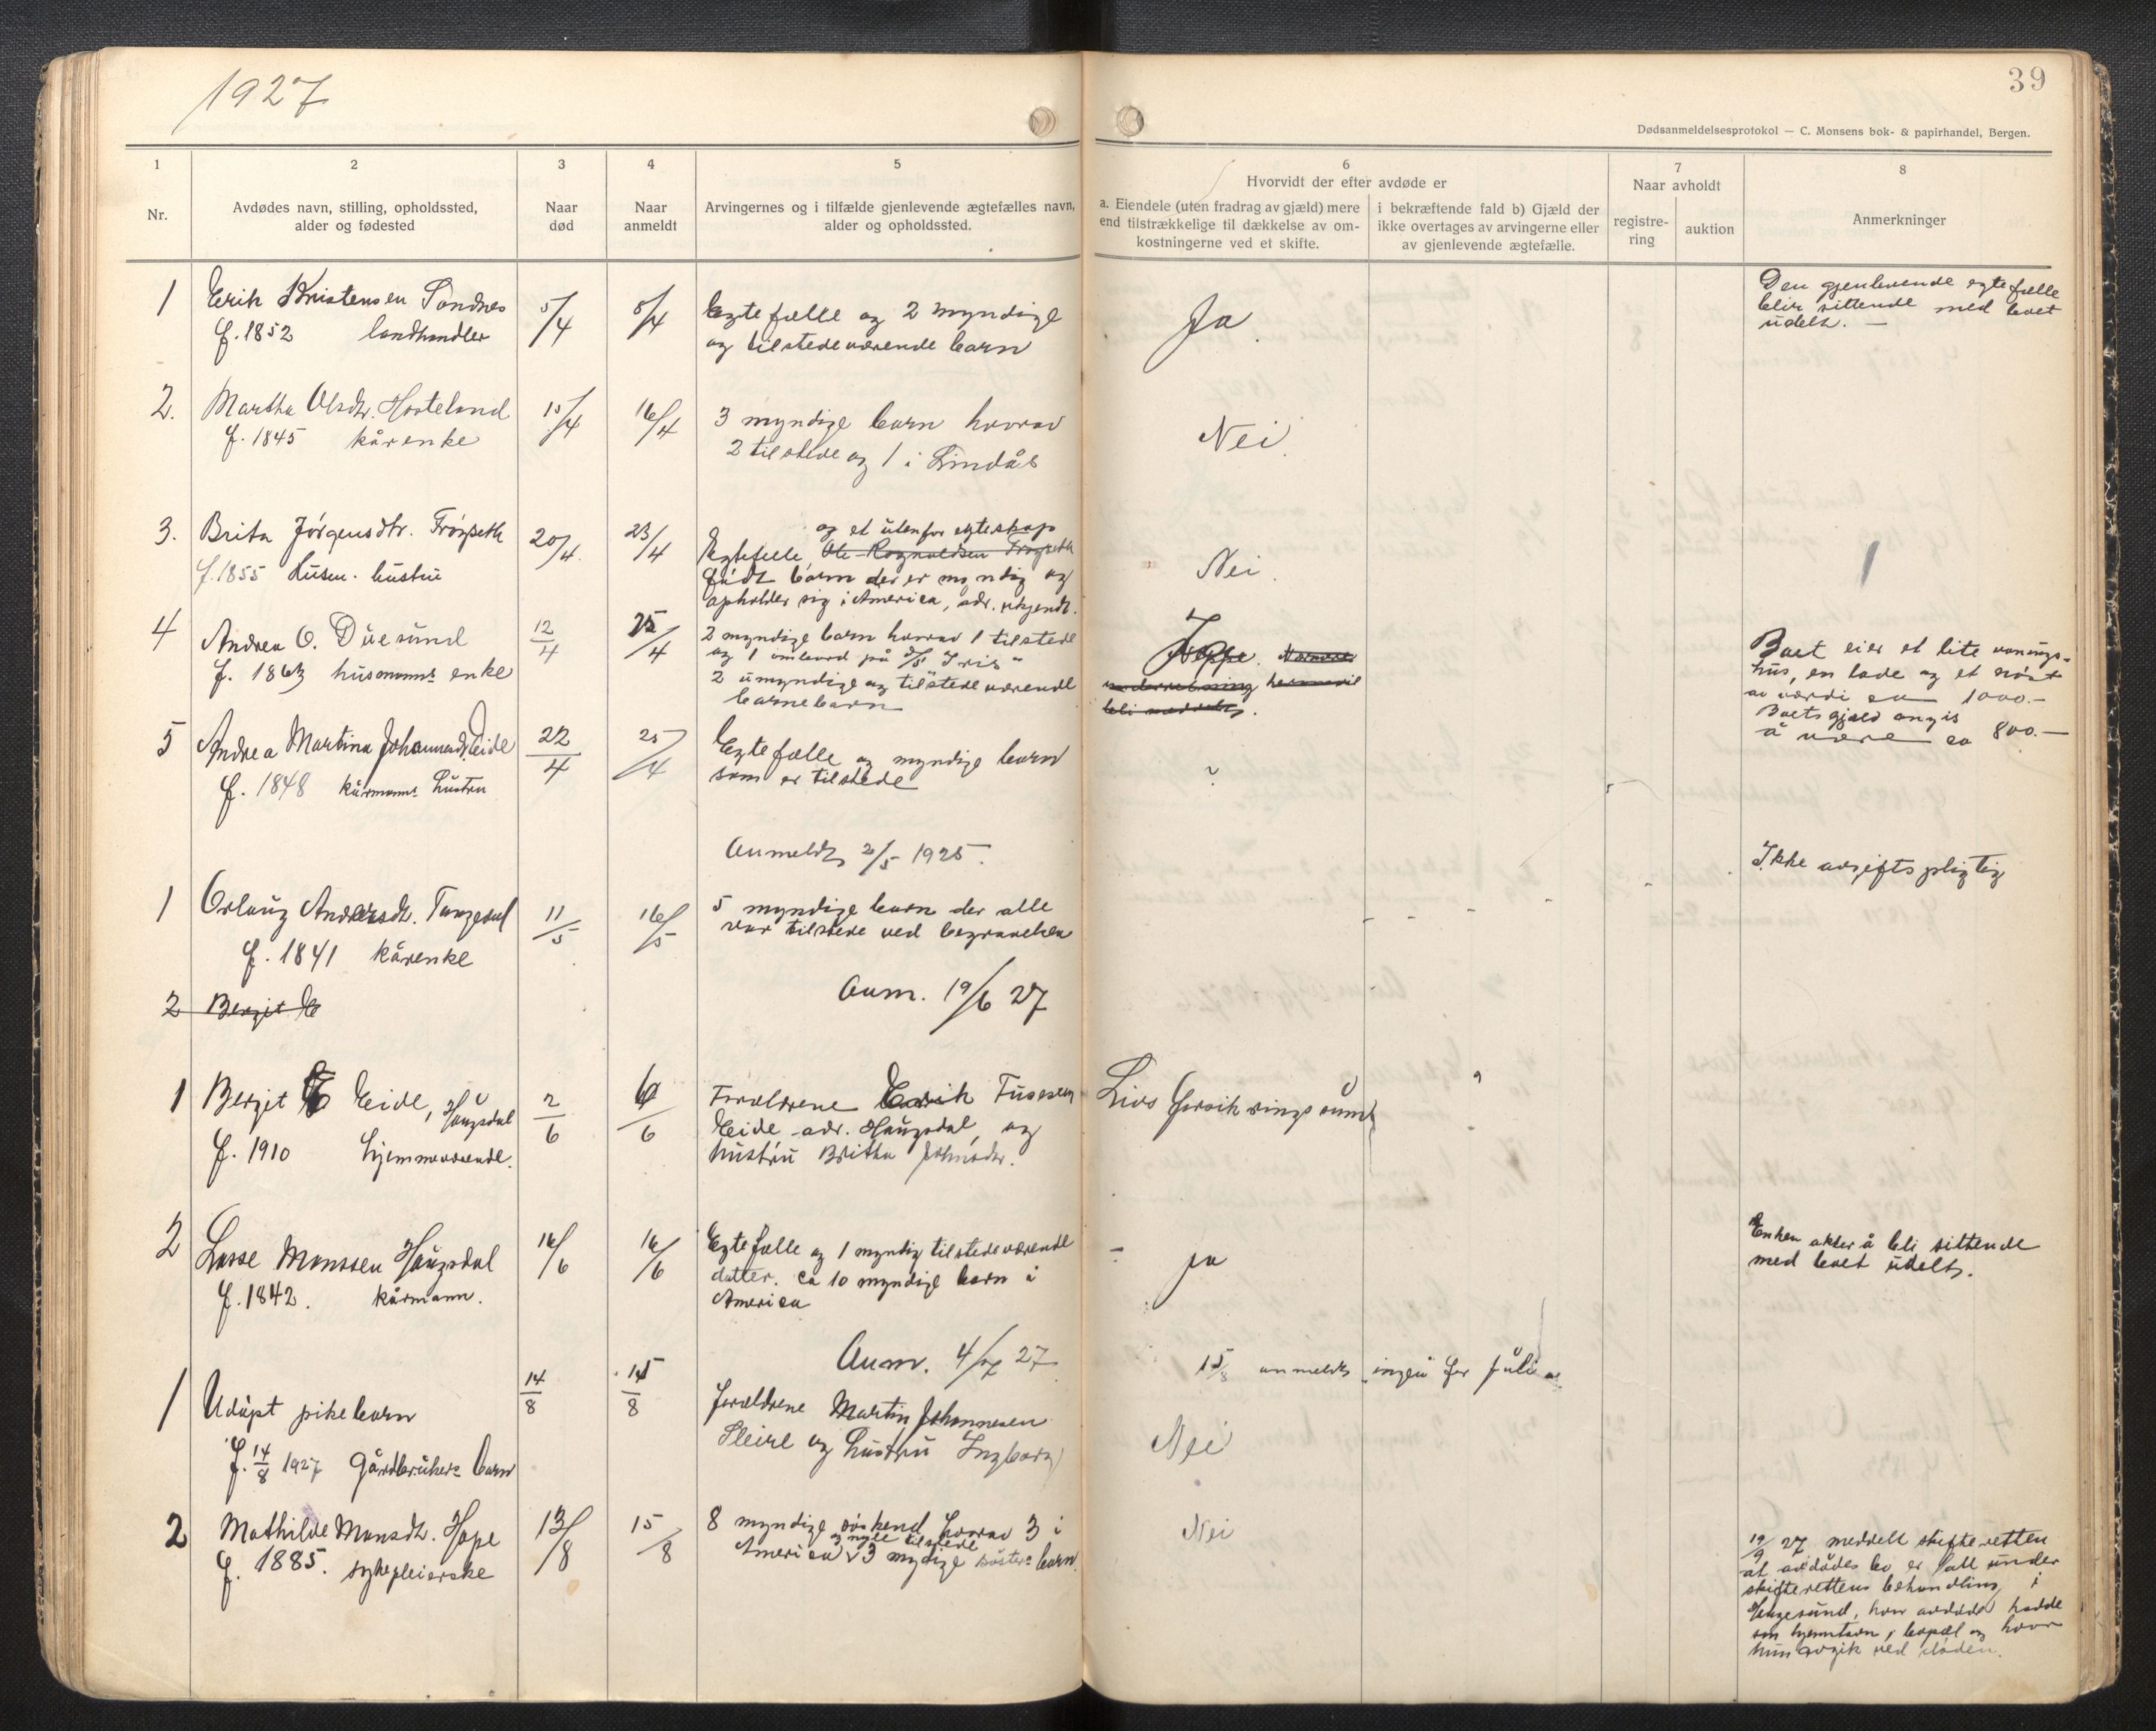 1927
39
Dødsanmeldelsesprotokol — C. Monsens bok- & papirhandel, Bergen.
1
Nr.
2
Avdødes navn, stilling, opholdssted,
alder og fødested
3
Naar
død
4
Naar
anmeldt
5
Arvingernes og i tilfælde gjenlevende ægtefælles navn,
alder og opholdssted.
6
Hvorvidt der efter avdøde er
a. Eiendele (uten fradrag av gjæld) mere
end tilstrækkelige til dækkelse av om-
kostningerne ved et skifte.
i bekræftende fald b) Gjæld der
ikke overtages av arvingerne eller
av gjenlevende ægtefælle.
7
Naar avholdt
registre-
ring
auktion
8
Anmerkninger
1
Erik Kristensen Sandnes
f. 1852 landhandler
5/4
8/4
Egtefælle og 2 myndige
og tilstedeværende barn
Ja
Den gjenlevende egtefælle
blir sittende med boet
udelt. —
2.
Martha Olsdtr. Hosteland
f. 1845 kårenke
15/4
16/4
3 myndige barn hvorav
2 tilstede og 1 i Lindås
Nei.
3.
Brita Jørgensdtr. Frøyseth
f. 1855 husm. hustru
20/4.
23/4
og et utenfor egteskap
Egtefælle Ole Ragnvaldsen Frøyseth
født barn der er myndig og
opholder sig i America, adr. ukjendt.
Nei.
4
Andrea O. Duesund
f. 1863 husmanns enke
12/4
25/4
2 myndige barn hvorav 1 tilstede
og 1 ombord på d/s "Iris"
2 umyndige og tilstedeværende
barnebarn
Ja
Neppe. Nærmere
underretning herom vil
bli meddelt.
Boet eier et lite vånings-
hus, en løde og et nøst
av værdi ca 1000.—
Boets gjæld angis
å være ca 800.—
5
Andrea Martina Johannesd. Eide
f. 1848 kårmanns hustru
22/4
25/4
Egtefælle og myndige barn
som er tilstede
Anmeldt 2/5 1925.
Ikke avgiftspligtig
1
Orlaug Andersdt. Tangedal
f. 1841 kårenke
11/5
16/5
5 myndige barn der alle
var tilstede ved begravelsen
Anm. 19/6 27
2 Bergit E
1
Bergit E Eide, Haugsdal
f. 1910 hjemmeværende.
2/6
6/6
Forældrene Erik
Eide adr. Haugsdal, og
hustru Britha Johnsdtr.
Livsforsikringssum
2
Lasse Monssen Haugsdal
f. 1842. kårmann.
16/6
16/6
Egtefælle og 1 myndig tilstedeværende
datter. ca 10 myndige barn i
America
ja
Enken akter å bli sittende
med boet udelt.
Anm. 4/7 27
15/8 anmeldt ingen for juli
1
Udøpt pikebarn
f. 14/8 1927 gårdbrukers barn
14/8
15/8
Forældrene Martin Johannesen
Sleire og hustru Ingborg
Nei
2
Mathilde Monsdt. Hope
f. 1885. sykepleierske
13/8
15/8
8 myndige søskend hvorav 3 i
America og 3 myndige søsters barn.
Nei
19/9 27 meddelt skifteretten
at avdødes bo er tatt under
skifterettens behandling i
Haugesund, hvor avdøde hadde
sin hjemstavn, bopæl og hvor
hun avgik ved døden.